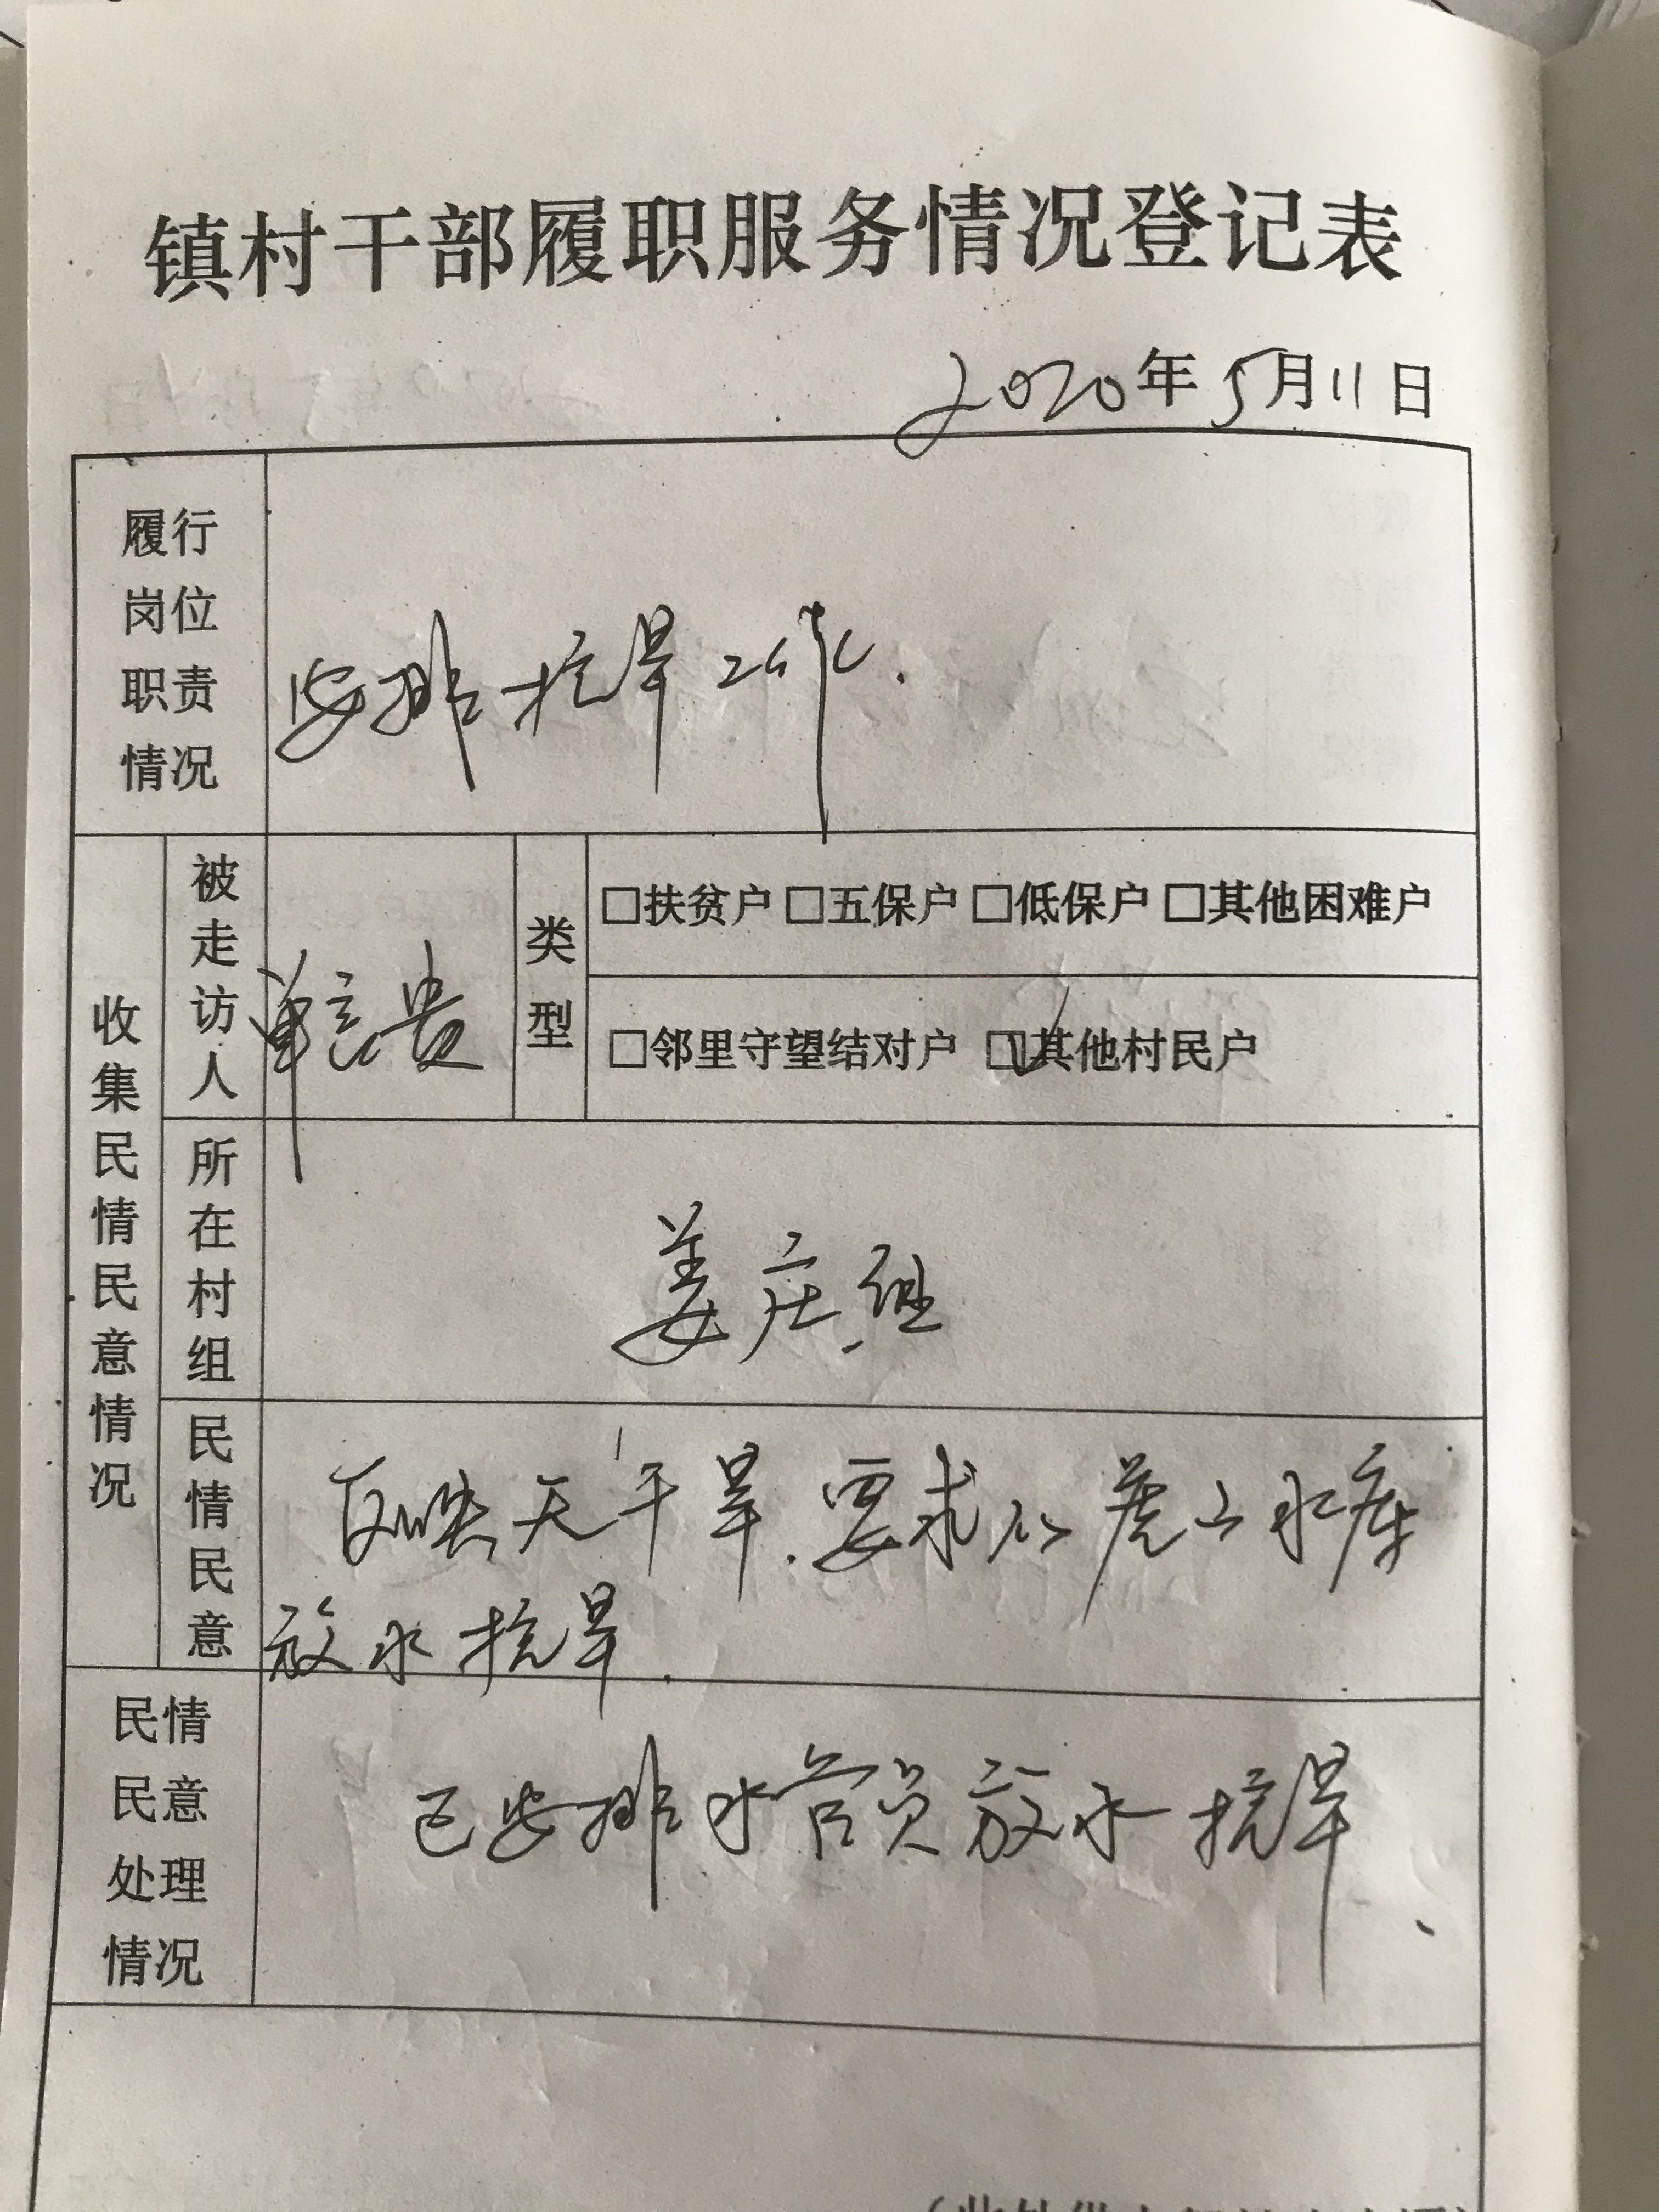 镇村干部履职服务情况登记表
2020年5月11日
履行
岗位
职责
情况
安排抗旱工作.
收集民情民意情况
被走访人
类型
□扶贫户 □五保户 □低保户 □其他困难户
□邻里守望结对户 ☑其他村民户
所在村组
姜庄组
民情民意
反映天干旱.要求从虎山水库
放水抗旱.
民情
民意
处理
情况
已安排水管员放水抗旱、